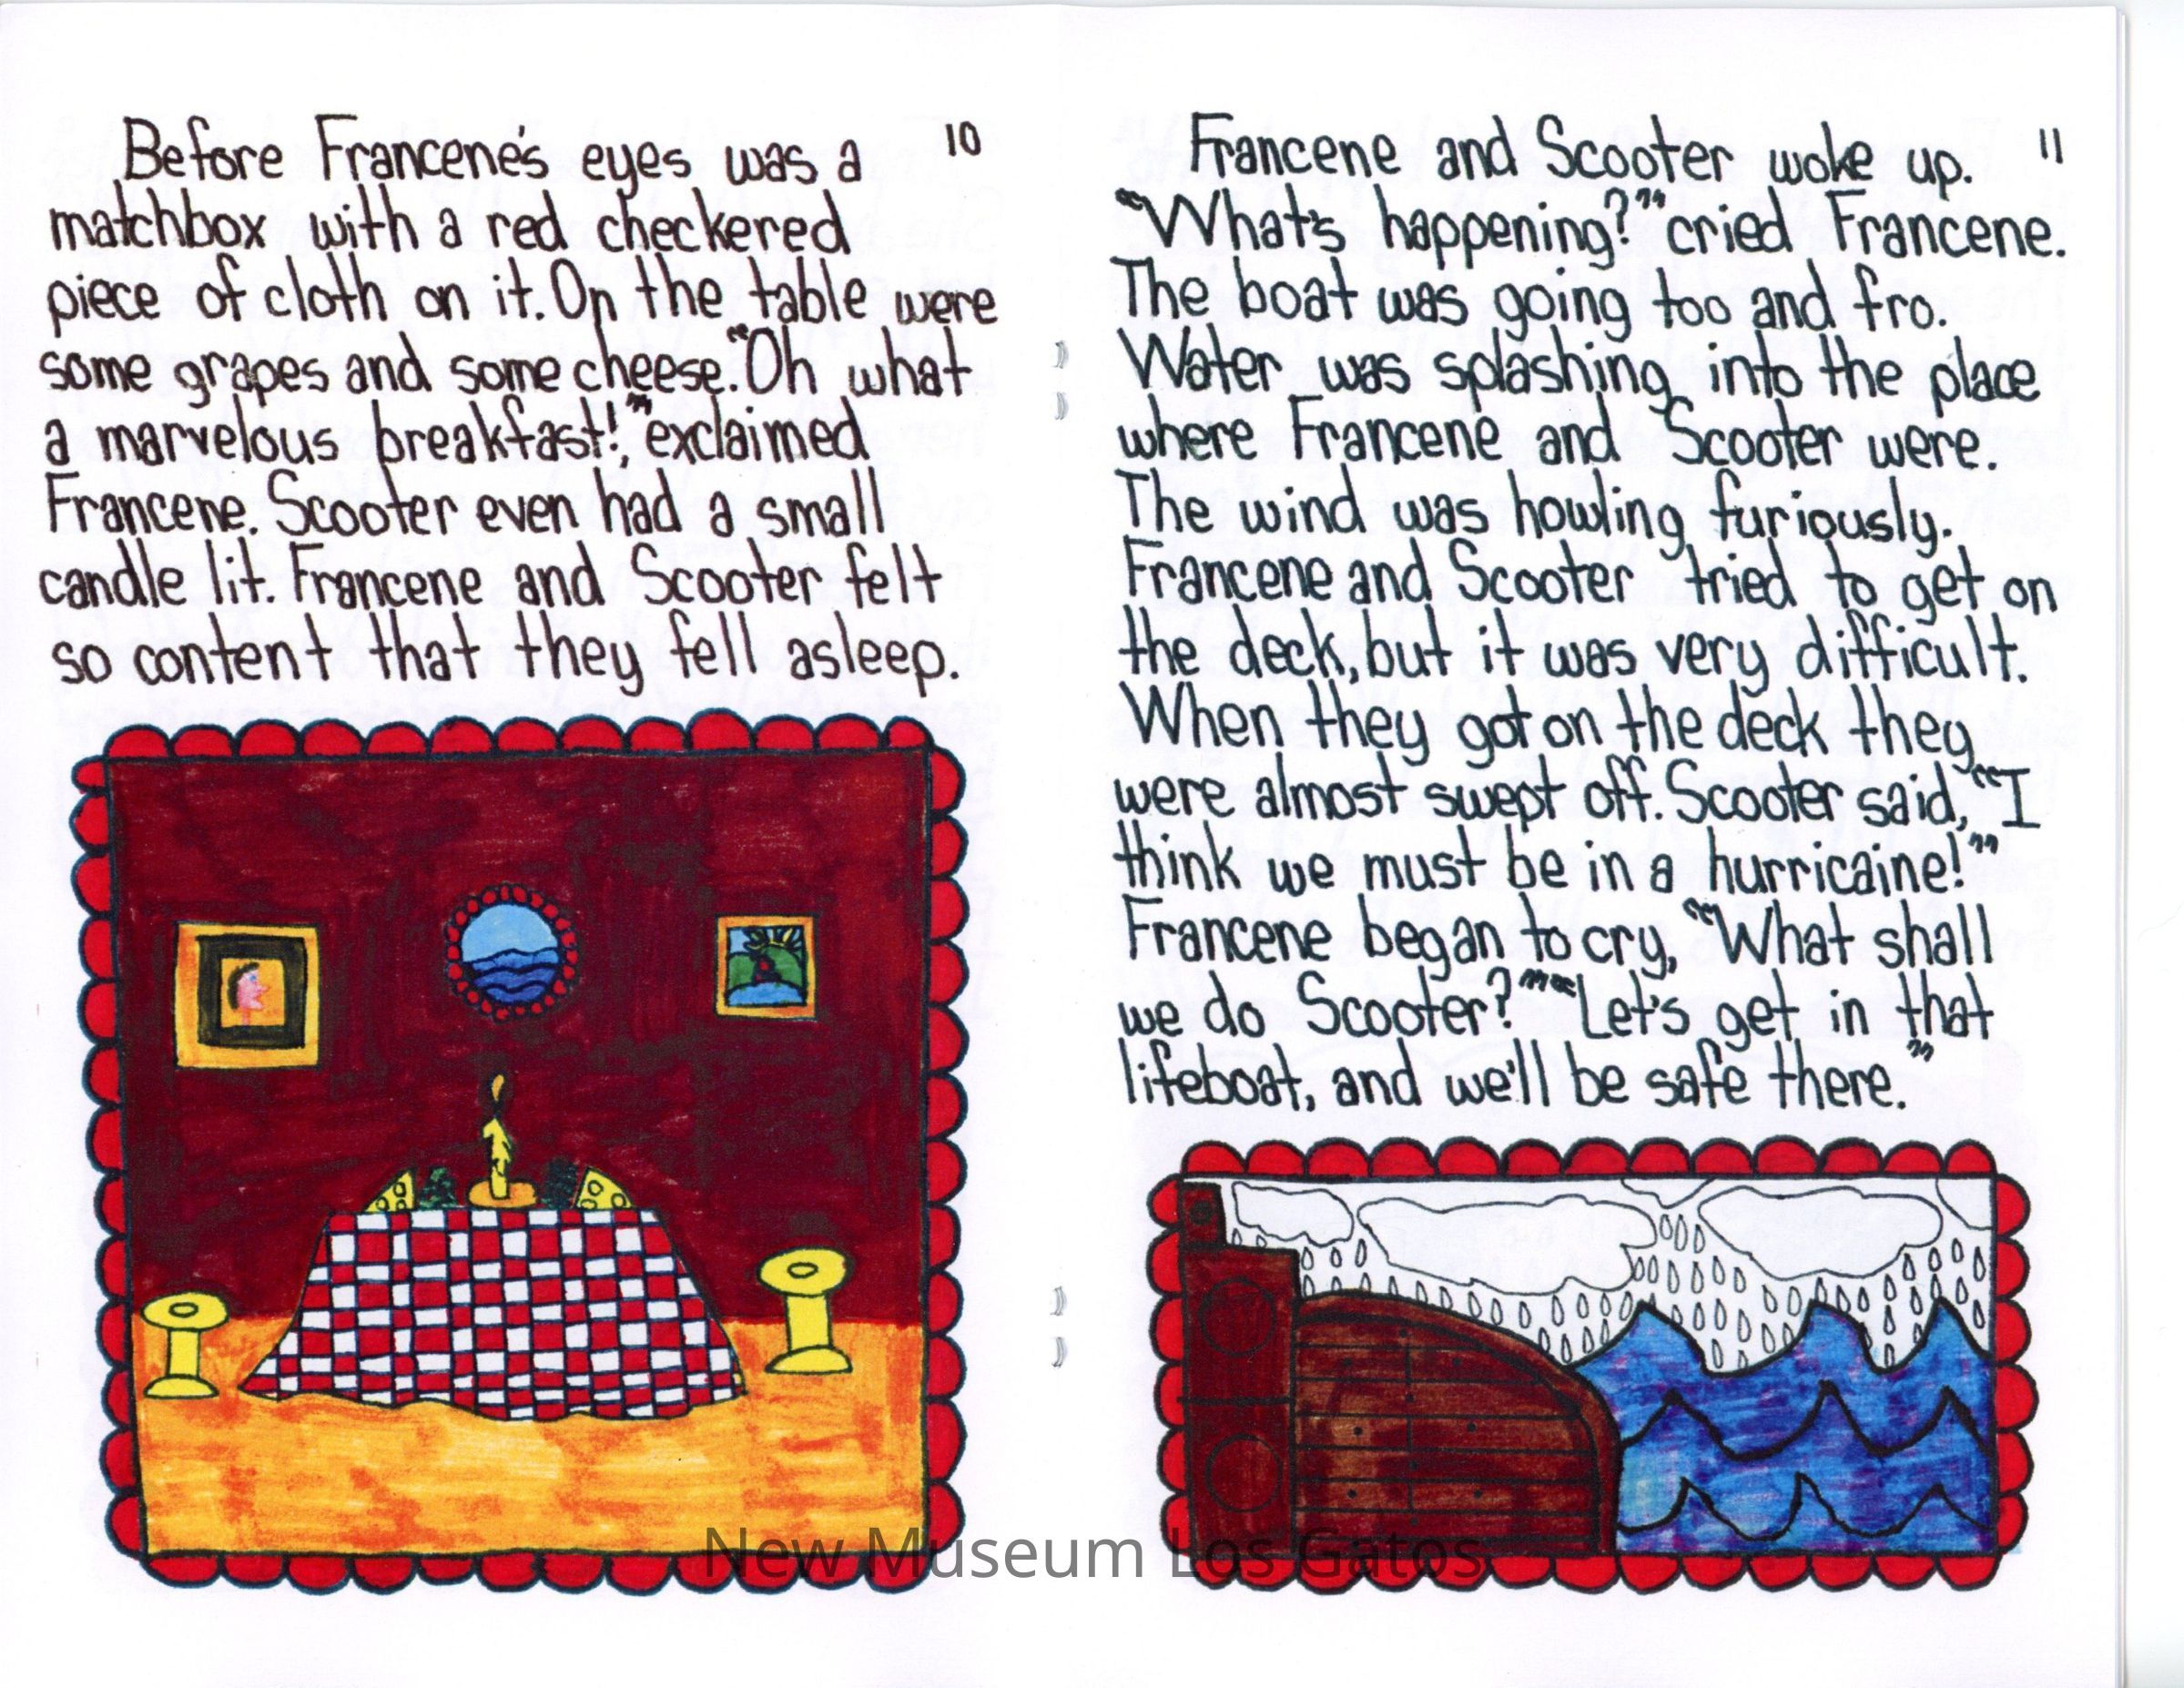 10
Before Francene's eyes was a
matchbox with a red checkered
piece of cloth on it. On the table were
some grapes and some cheese. "Oh what
a marvelous breakfast!," exclaimed
Francene. Scooter even had a small
candle lit. Francene and Scooter felt
so content that they fell asleep.
11
Francene and Scooter woke up.
"What's happening?" cried Francene.
The boat was going too and fro.
Water was splashing into the place
where Francene and Scooter were.
The wind was howling furiously.
Francene and Scooter tried to get on
the deck, but it was very difficult.
When they got on the deck they
were almost swept off. Scooter said, "I
think we must be in a hurricaine!"
Francene began to cry, "What shall
we do Scooter?" "Let's get in that
lifeboat, and we'll be safe there."
New Museum Los Gatos